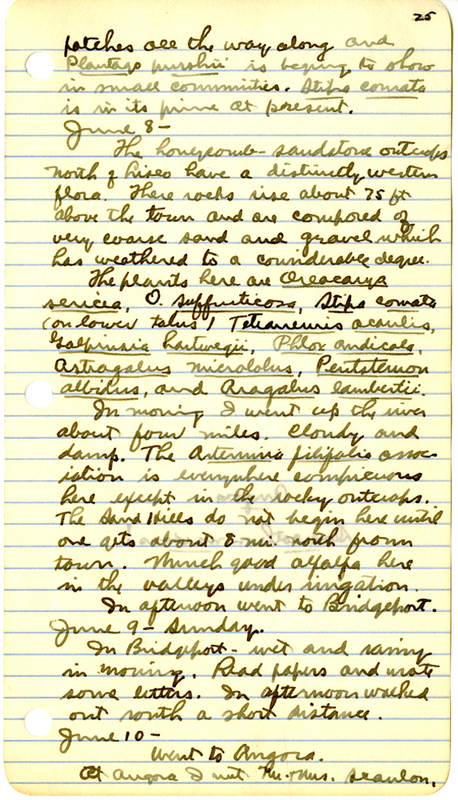 25
patches all the way along and
Plantago purshii is beging to show
in small communities. Stipa comata
is in its prime at present.
June 8-
The honeycomb-sandstone outcrops
north of Lisco have a distinctly western
flora. These rocks rise about 75 ft
above the town and are composed of
very coarse sand and gravel which
has weathered to a considerable degree.
The plants here are Oreocarya
sericea, O. suffruticosa, Stipa comata
(on lower talus) Tetraneuris acaulis,
Galpinsia hartwegii, Phlox andicola,
Astragalus microlobus, Pentstemon
albidus, and Aragalus lambertii.
In morning I went up the river
about four miles. Cloudy and
damp. The Artemisia filifolia assoc-
iation is everywhere conspicuous
here except in the rocky outcrops.
The Sand Hills do not begin here until
one gets about 8 mi. north from
town. Much good alfalfa here
in the valleys under irrigation.
In afternoon went to Bridgeport.
June 9- Sunday.
In Bridgeport- wet and rainy
in morning. Read papers and wrote
some letters. In afternoon walked
out south a short distance.
June 10-
Went to Angora.
At Angora I met Mr. Mrs. Scanlon.